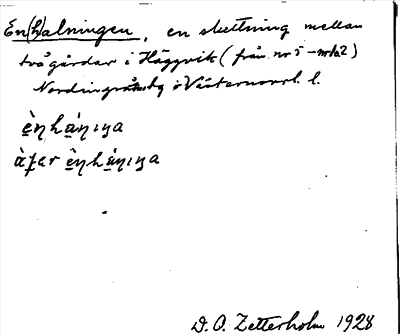 En(h)alningen, en sluttning mellan
två gårdar i Häggvik (från nr 5 – nr 1o2)
Nordingrå i Västernorrl. l.
èŋhàŋıŋa
àfer èŋhàŋıŋa
D. O. Zetterholm 1928